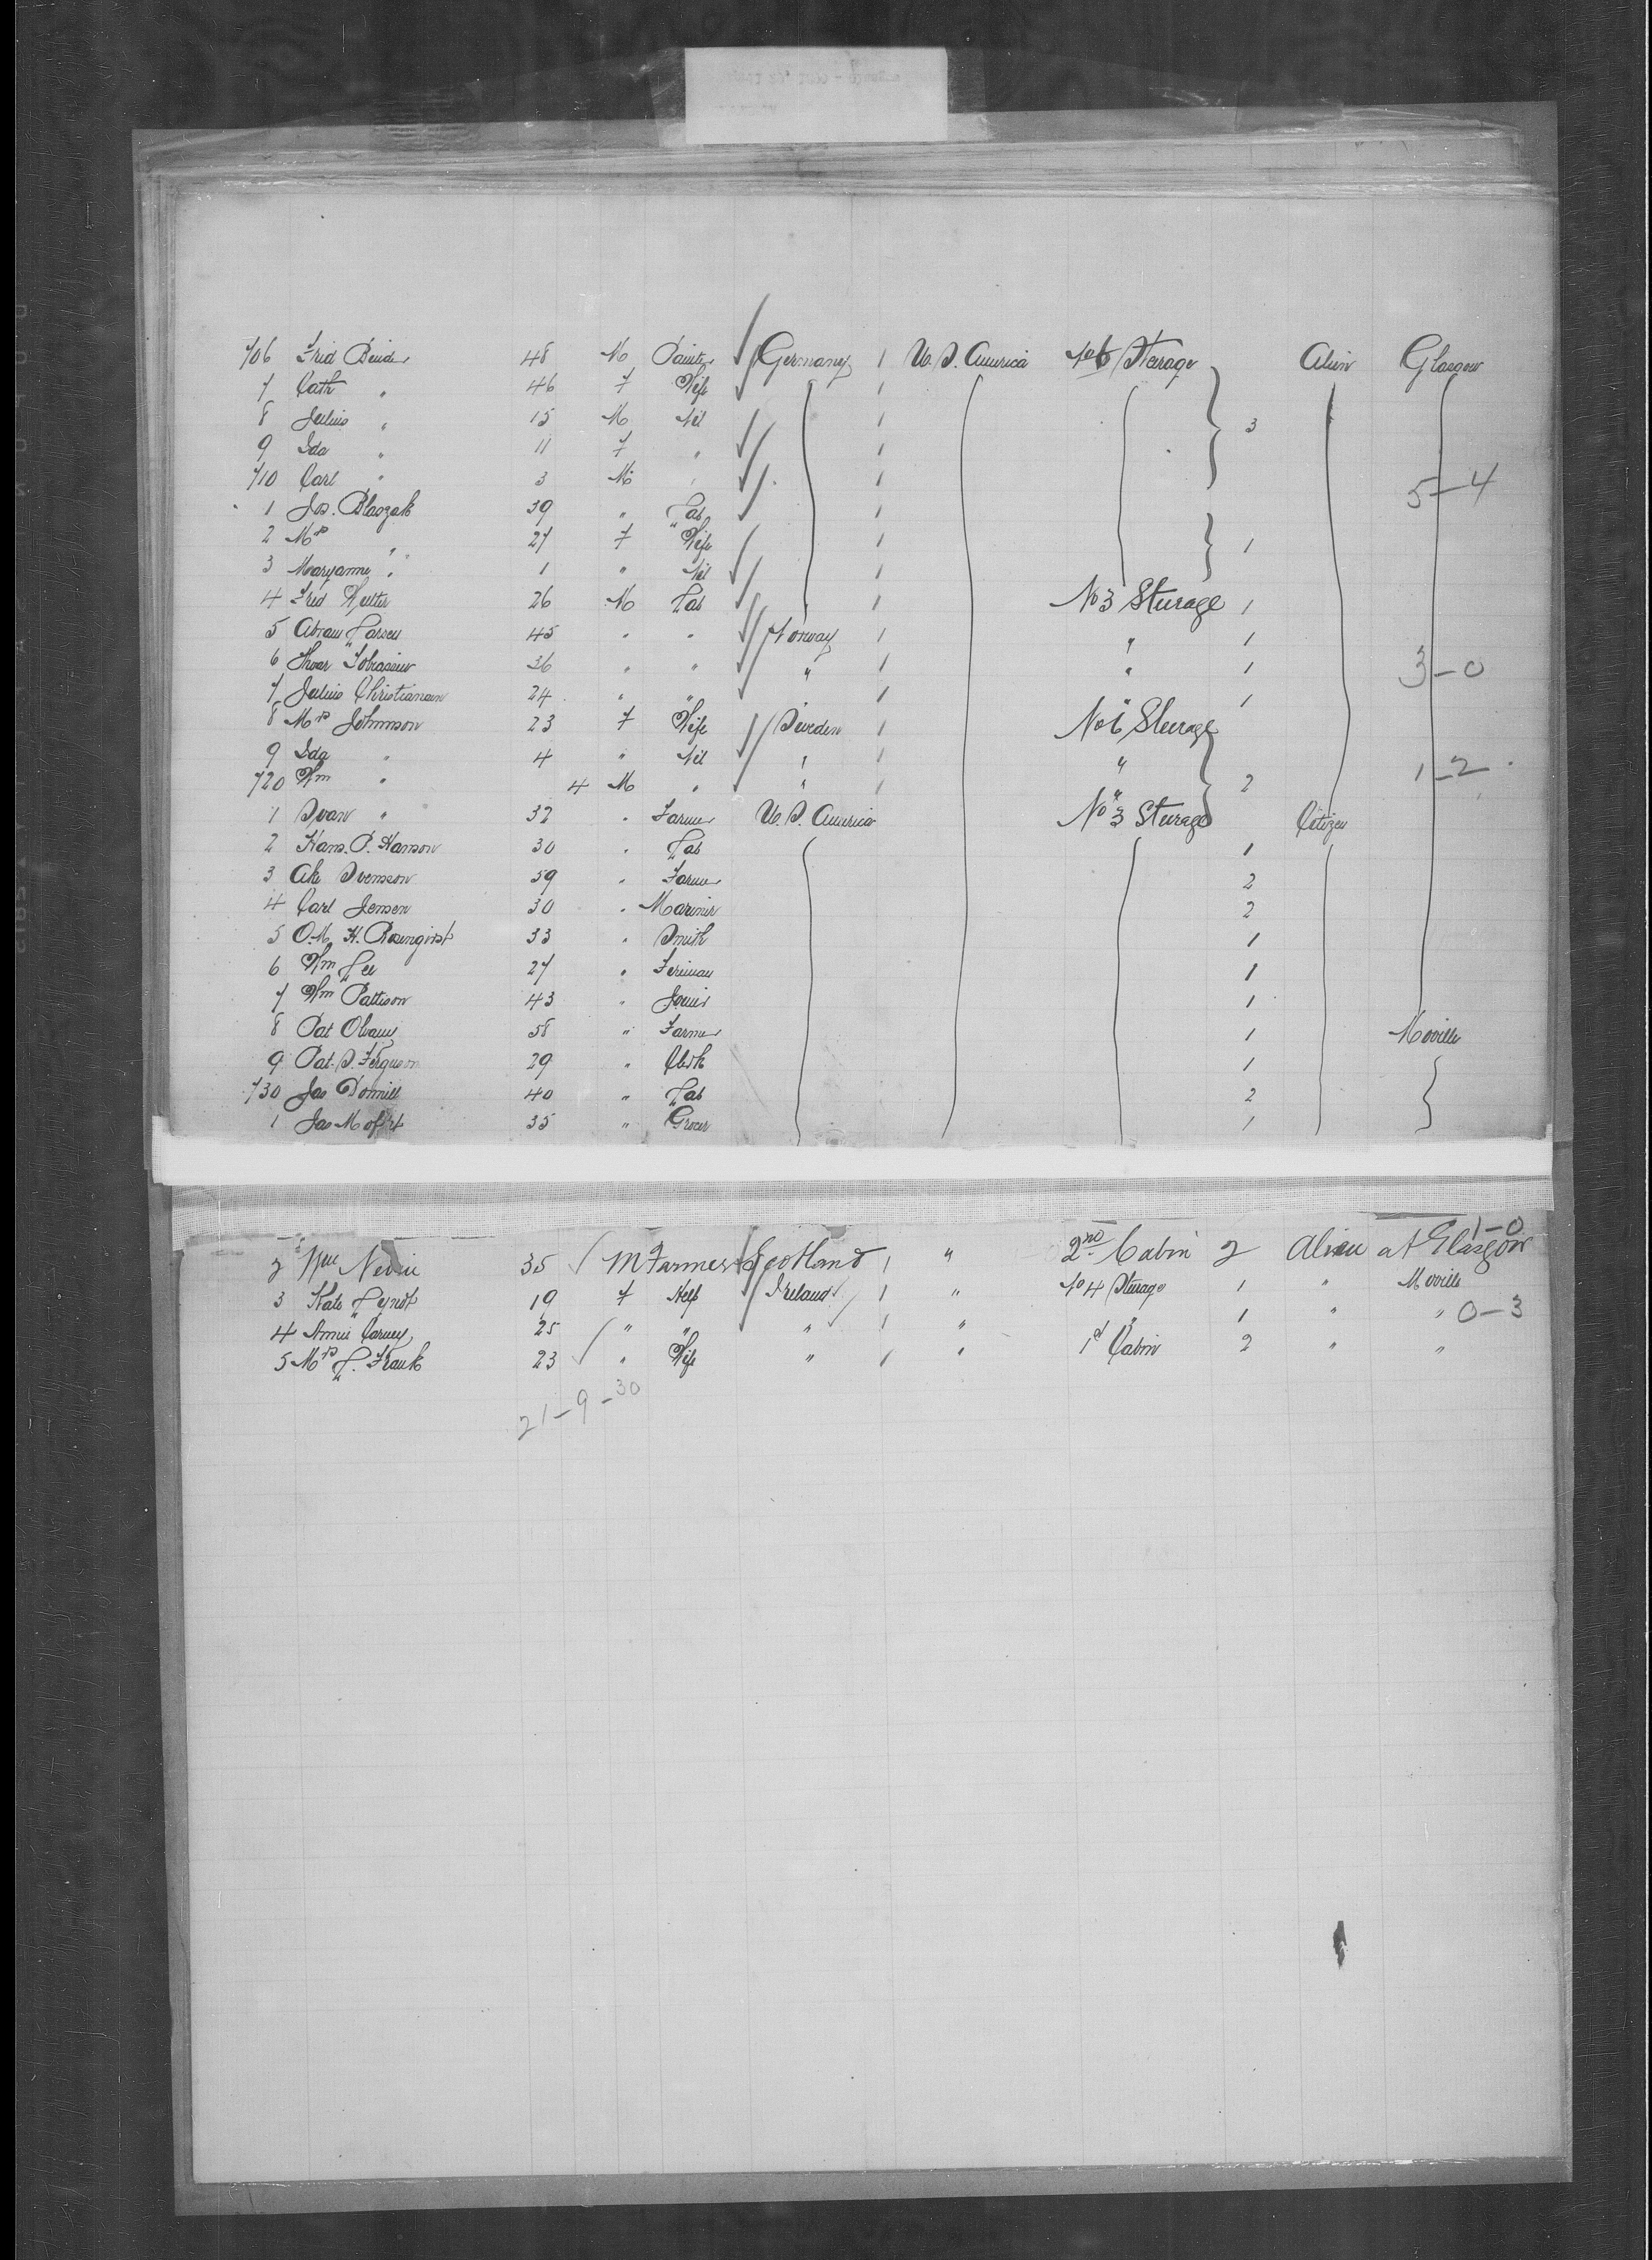 706 Fred Bender 48 M Painter Germany 1 U.S. America No 6 Sterage Alien Glasgow
7 Cath " 46 F Wife 1
8 Julius " 15 M Nil 1 3
9 Ida " 11 F " 1
710 Carl " 3 M " 1 5-4
1 Jos. Blaszak 39 " Lab 1
2 Mrs " 27 F Wife 1 1
3 Maryanne " 1 " Nil 1
4 Fred Welter 26 M Lab 1 No 3 Sterage 1
5 Abram Larsen 45 " " Norway 1 " 1
6 36 " " " 1 " 1 3-0
7 Julius Christiansen 24 " " 1 " 1
8 Mrs Johnson 23 F Wife Sweden 1 No 6 Sterage
9 Ida " 4 " Nil " 1 "
720 Wm " 4 M " " 1 " 2 1-2
1 Svan " 32 " Farmer U.S. America No 3 Sterage Citizen
2 Hans. P. Hanson 30 " Lab 1
3 Ake Svenson 59 " Farmer 2
4 Carl Jensen 30 " Mariner 2
5 O.M. H. Rosenqvist 33 " Smith 1
6 Wm Lee 27 " Fireman 1
7 Wm Pattison 43 " Joiner 1
8 Pat 58 " Farmer 1 Moville
9 Pat. S. Ferguson 29 " Clerk 1
730 Jas 40 " Lab 2
1 Jas Moffat 35 " Grocer 1
1-0
2 Wm Nevin 35 M Farmer Scotland 1 " 2nd Cabin 2 Alien at Glasgow
3 Kate 19 F Help Ireland 1 " No 4 Sterage 1 " Moville
4 Annie Carney 25 " " " 1 " " 1 " " 0-3
5 Mrs L. Frank 23 " Wife " 1 " 1st Cabin 2 " "
21-9-30